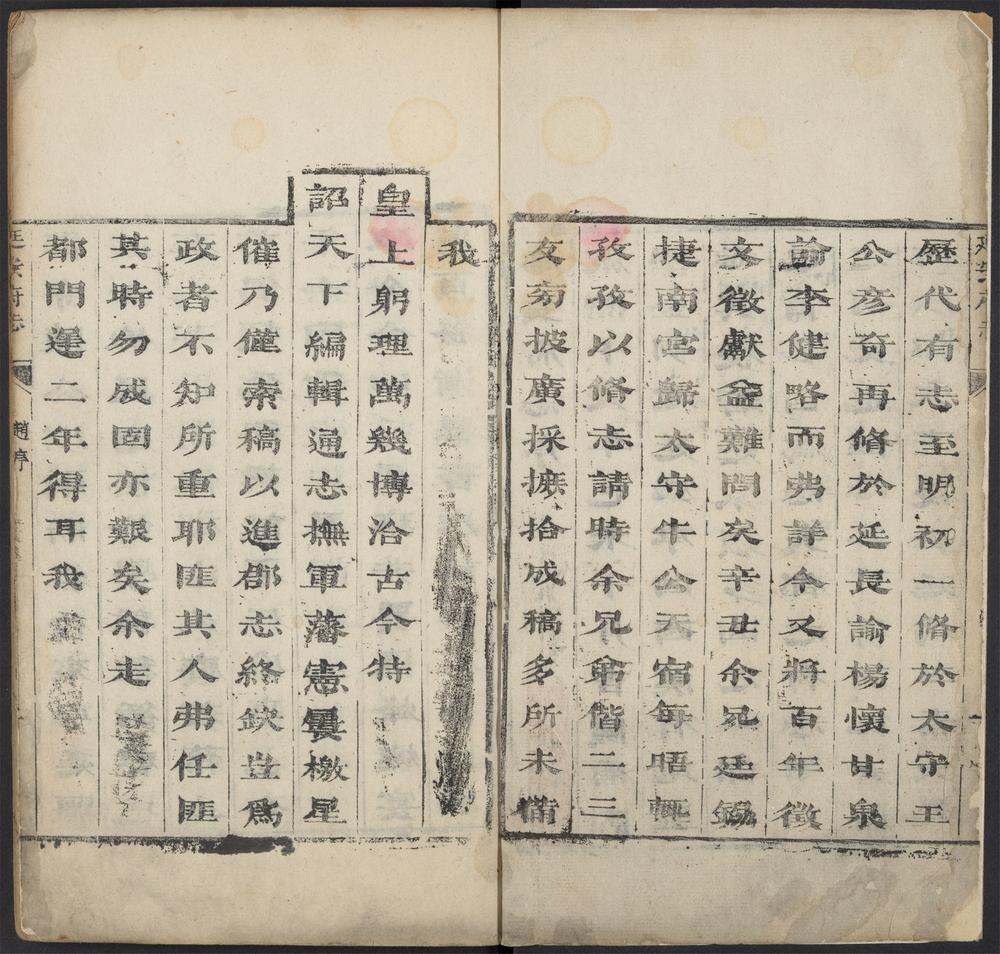 歷代有志至明初一脩於太守王
公彥奇再脩於延長諭楊懷甘泉
諭李健略而弗詳今又將百年徵
文徵獻益難問矣辛丑余兄廷錫
捷南宮歸太守牛公天宿每晤輒
孜孜以脩志請時余兄弟偕二三
友旁披廣採摭拾成稿多所未備
我
皇上躬理萬幾博洽古今特
詔天下編輯通志撫軍藩憲曩檄星
催乃僅索稿以進郡志終欽豈爲
政者不知所重耶匪其人弗任匪
其時勿成固亦艱矣余走
都門蓬二年得耳我
府志